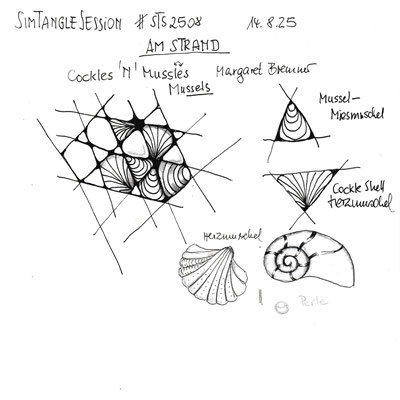 SIMTANGLESESSION # STS2508 14.8.25
AM STRAND
Cockles 'N' Mussles Margaret Bremner
Mussels
Mussel-
Miesmuschel
Cockle Shell
Herzmuschel
Herzmuschel
Perle